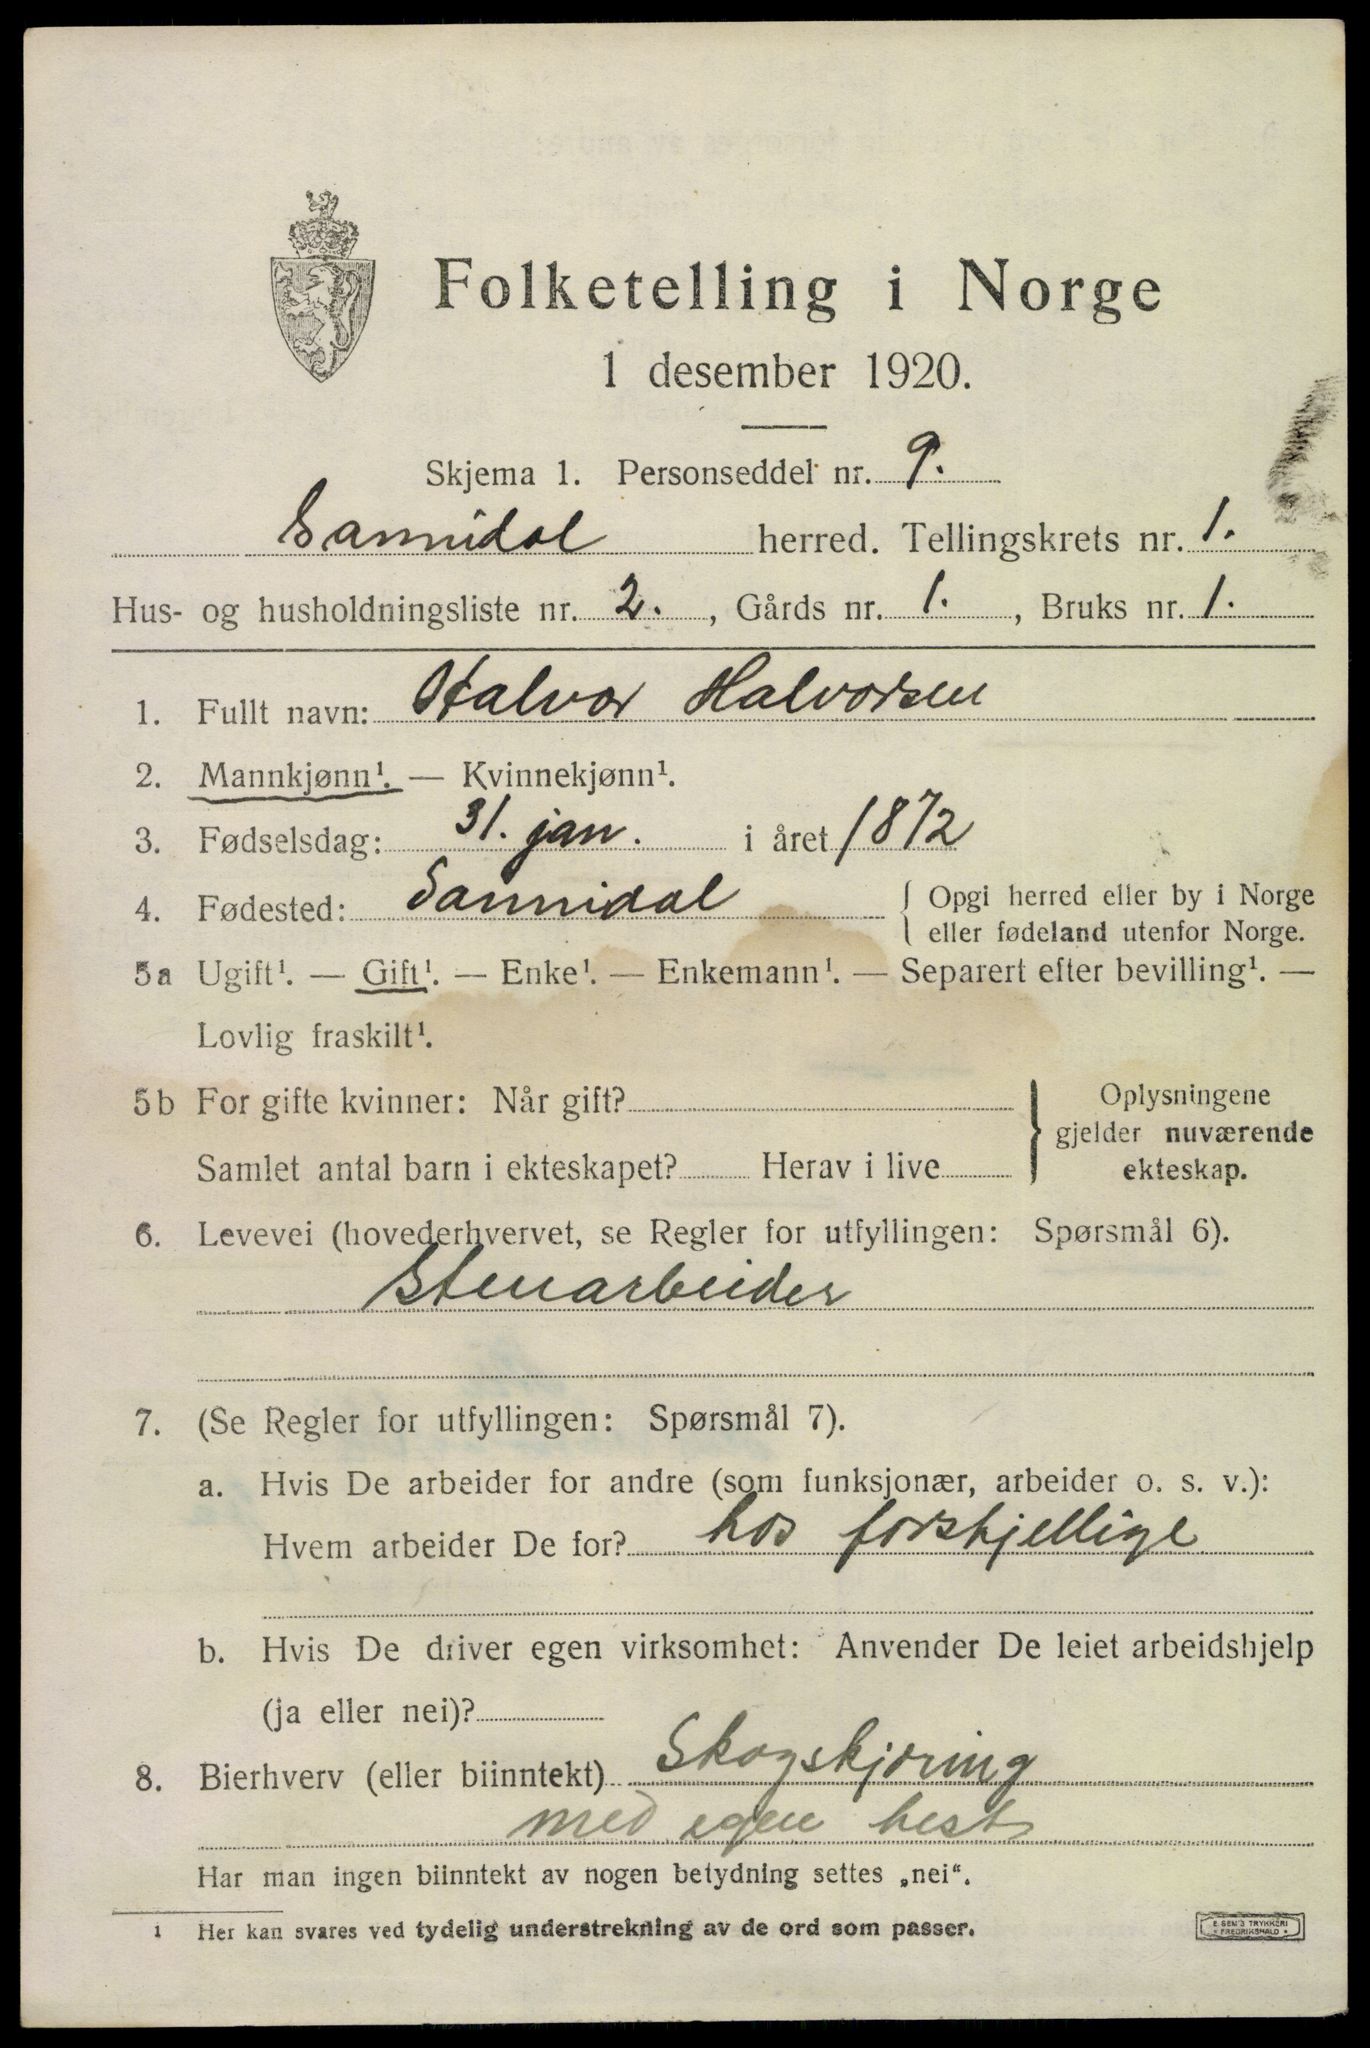 Folketelling i Norge
1 desember 1920.
Skjema 1. Personseddel nr. 9.
Sannidal herred. Tellingskrets nr. 1.
Hus- og husholdningsliste nr. 2., Gårds nr. 1., Bruks nr. 1.
1. Fullt navn: Halvor Halvorsen
2. Mannkjønn¹. — Kvinnekjønn¹.
3. Fødselsdag: 31. jan. i året 1872
4. Fødested: Sannidal { Opgi herred eller by i Norge
eller fødeland utenfor Norge.
5a Ugift¹. — Gift¹. — Enke¹. — Enkemann¹. — Separert efter bevilling¹. —
Lovlig fraskilt¹.
5b For gifte kvinner: Når gift? } Oplysningene
gjelder nuværende
Samlet antal barn i ekteskapet? Herav i live
ekteskap.
6. Levevei (hovederhvervet, se Regler for utfyllingen: Spørsmål 6).
Stenarbeider
7. (Se Regler for utfyllingen: Spørsmål 7).
a. Hvis De arbeider for andre (som funksjonær, arbeider o. s. v.):
Hvem arbeider De for? hos forskjellige
b. Hvis De driver egen virksomhet: Anvender De leiet arbeidshjelp
(ja eller nei)?
8. Bierhverv (eller biinntekt) Skogskjøring
med egen hest
Har man ingen biinntekt av nogen betydning settes „nei“.
1 Her kan svares ved tydelig understrekning av de ord som passer.
E. SEM'S TRYKKERI
* FREDRIKSHALD *